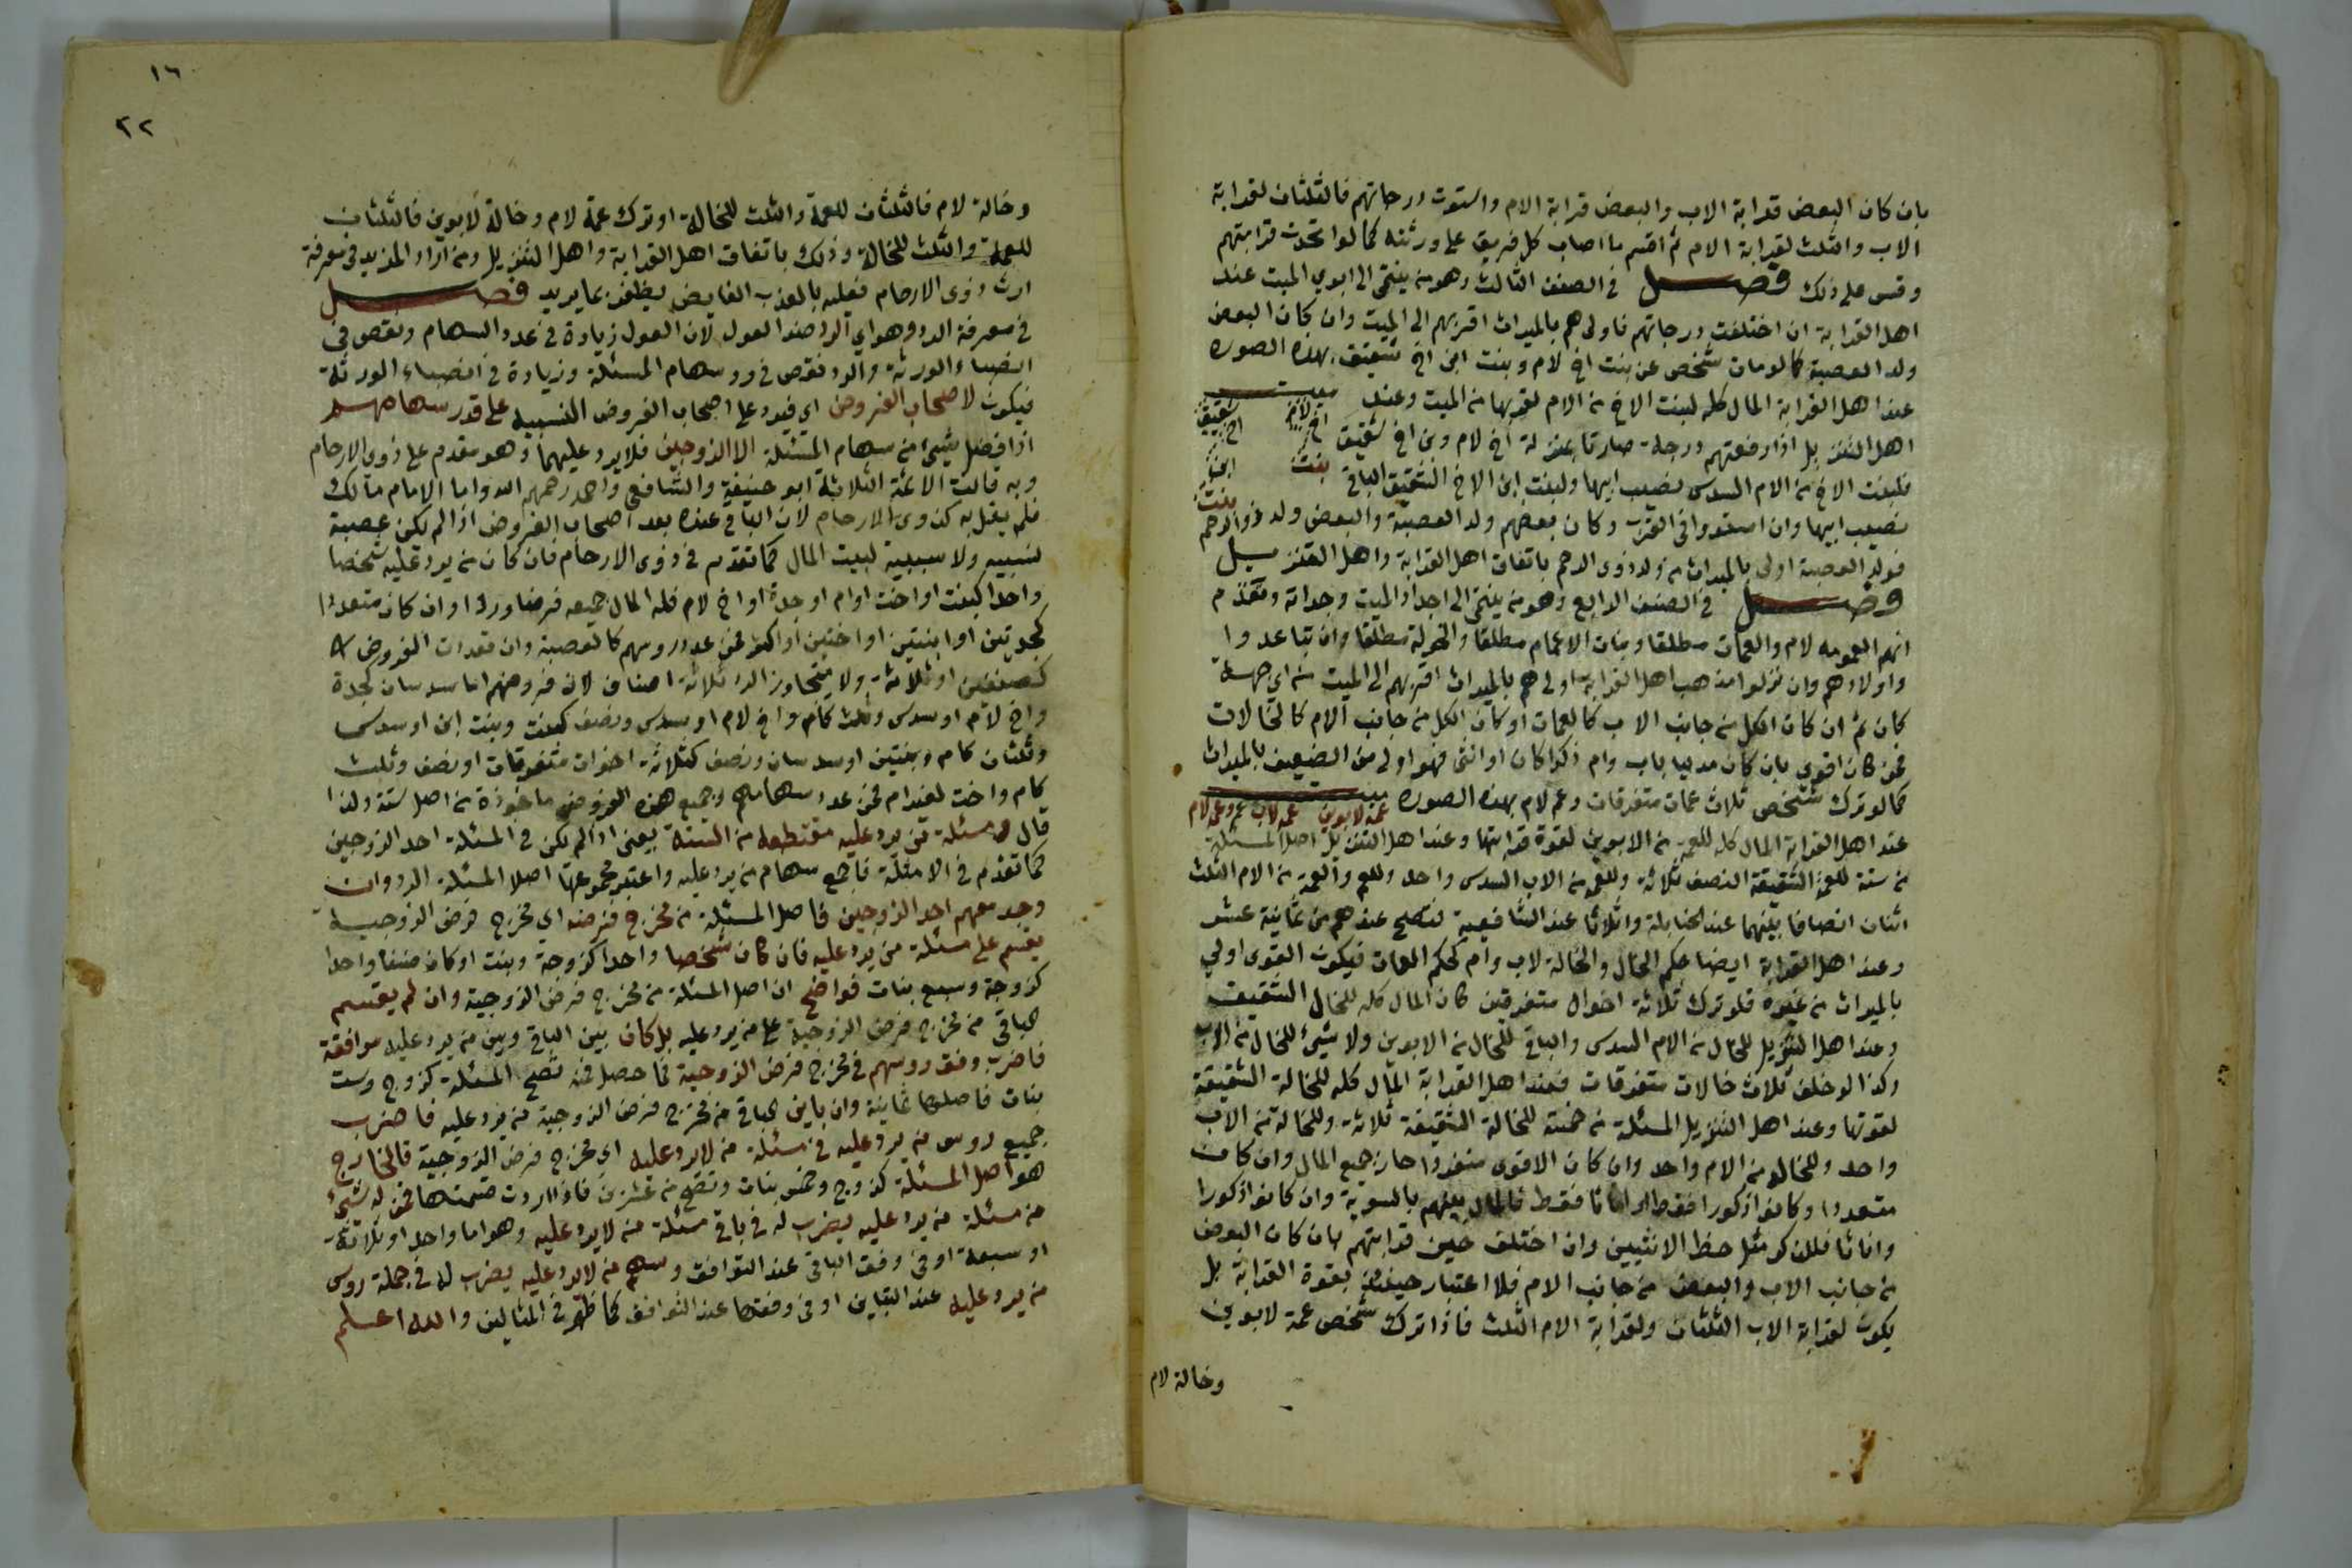 بان كان البعض قرابة الاب والبعض قرابة الام واستوت درجاتهم فالثلثان لقرابة
الاب والثلث لقرابة الام ثم اقسم ما اصاب كل فريق على ورثته كما لو اتحدت قرابتهم
وقس على ذلك فصل في الصنف الثالث وهو من ينتمى الى ابوي الميت عند
اهل القرابة ان اختلفت درجاتهم فاولى هم بالميراث اقربهم الى الميت وان كان البعض
ولد العصبة كما لو مات شخص عن بنت اخ لام وبنت ابن اخ شقيق بهذه الصوره
عند اهل القرابة المال كله لبنت الاخ من الام لقربها من الميت وعند ميت
اهل التنزيل اذا رفعتهم درجة صارتا بمنزلة اخ لام وبن اخ شقيق اخ لام اخ شقيق
فلبنت الاخ من الام السدس نصيب ابيها ولبنت ابن الاخ الشقيق الباقي بنت ابن
نصيب ابيها وان استووا في القرب وكان بعضهم ولد العصبة والبعض ولد ذو الرحم بنت
فولد العصبة اولى بالميراث من ولد ذوى الرحم باتفاق اهل القرابة واهل التنزيل
فصل في الصنف الرابع وهو من ينتمى الى اجداد الميت وجداته وتقدم
انهم العمومه لام والعمات مطلقا وبنات الاعمام مطلقا والخولة مطلقا وان تباعدوا
واولادهم وان نزلوا مذهب اهل القرابة اولى هم بالميراث اقربهم الى الميت من اي جهة
كان ثم ان كان الكل من جانب الاب كالعمات او كان الكل من جانب الام كالخالات
فمن كان اقوى بان كان مدليا باب وام ذكرا كان او انثى فهو اولى من الضعيف بالميراث
كما لو ترك شخص ثلاث عمات متفرقات وعم لام بهذه الصورة ميت عمة لابوين عمه لاب عم وعمه لام
عند اهل القرابة المال كله للعمة من الابوين لقوة قرابتها وعند اهل التنزيل اصل المسئلة
من ستة للعمة الشقيقة النصف ثلاثة وللعمه من الاب السدس واحد وللعم والعمة من الام الثلث
اثنان انصافا بينهما عند الحنابلة واثلاثا عند الشافعية فتصح عندهم من ثمانية عشر
وعند اهل القرابة ايضا حكم الخال والخالة لاب وام كحكم العمات فيكون القوى اولى
بالميراث من غيره فلو ترك ثلاثة اخوال متفرقين كان المال كله للخال الشقيق
وعند اهل التنزيل للخال من الام السدس والباقي للخال من الابوين ولا شيئ للخال من الاب
وكذا لو خلف ثلاث خالات متفرقات فعند اهل القرابة المال كله للخالة الشقيقة
لقوتها وعند اهل التنزيل المسئلة من خمسة للخالة الشقيقة ثلاثة وللخالة من الاب
واحد وللخاله من الام واحد وان كان الاقوى منفردا حاز جميع المال وان كان
متعددا وكانوا ذكورا فقط او اناثا فقط فالمال بينهم بالسوية وان كانوا ذكورا
واناثا فللذكر مثل حظ الانثيين وان اختلف حيز قرابتهم بان كان البعض
من جانب الاب والبعض من جانب الام فلا اعتبار حينئذ بقوة القرابة بل
يكون لقرابة الاب الثلثان ولقرابة الام الثلث فاذا ترك شخص عمة لابوين
وخالة لام
١٦
٢٢
وخالة لام فالثلثان للعمة والثلث للخالة او ترك عمة لام وخالة لابوين فالثلثان
للعمة والثلث للخالة وذلك باتفاق اهل القرابة واهل التنزيل ومن اراد المزيد في معرفة
ارث ذوى الارحام فعليه بالعذب الفايض يظفر بما يريد فصل
في معرفة الرد وهو اي الرد ضد العول لان العول زيادة في عدد السهام ونقص في
انصباء الورثة والرد نقص في سهام المسئلة وزيادة في انصباء الورثة
فيكون لاصحاب الفروض اي فيرد على اصحاب الفروض النسبيه على قدر سهامهم
اذا فضل شيئ من سهام المسئلة الا الزوجين فلا يرد عليهما وهو مقدم على ذوى الارحام
وبه قالت الائمة الثلاثة ابو حنيفة والشافعى واحمد رحمهم الله واما الامام مالك
فلم يقل به كذوى الارحام لان الباقي عنده بعد اصحاب الفروض اذا لم يكن عصبة
نسبيه ولا سببية لبيت المال كما تقدم في ذوى الارحام فان كان من يرد عليه شخصا
واحدا كبنت او اخت او ام او جدة او اخ لام فله المال جميعه فرضا وردا وان كان متعددا
كجدتين او ابنتين او اختين او اكثر فمن عدد روسهم كالعصبة وان تعددت الفروض
كصنفين او ثلاثة ولا يتجاوز الرد ثلاثة اصناف لان فروضهم اما سدسان كجدة
واخ لام او سدس وثلث كام واخ لام او سدس ونصف كبنت وبنت ابن او سدس
وثلثان كام وبنتين او سدسان ونصف كثلاثة اخوات متفرقات او نصف وثلث
كام واخت لغير ام فمن عدد سهامهم وجميع هذه الفروض ماخوذة من اصل ستة ولذا
قال ومسئلة من يرد عليه مقتطعه من الستة يعنى اذا لم يكن في المسئلة احد الزوجين
كما تقدم في الامثلة فاجمع سهام من يرد عليه واعتبر مجموعها اصلا لمسئلة الرد وان
وجد معهم احد الزوجين فاصل المسئلة من مخرج فرضه اي مخرج فرض الزوجية
يقسم على مسئلة من يرد عليه فان كان شخصا واحدا كزوجة وبنت او كان صنفا واحدا
كزوجة وسبع بنات فواضح ان اصل المسئلة من مخرج فرض الزوجية وان لم يقسم
الباقي من مخرج فرض الزوجية على من يرد عليه بل كان بين الباقي وبين من يرد عليه موافقة
فاضرب وفق روسهم في مخرج فرض الزوجية فما حصل فمنه تصح المسئلة كزوج وست
بنات فاصلها ثمانية وان باين الباقي من مخرج فرض الزوجية من يرد عليه فاضرب
جميع روس من يرد عليه في مسئلة من لا يرد عليه اي مخرج فرض الزوجية فالخارج
هو اصل المسئلة كزوج وخمس بنات وتصح من عشرين فاذا اردت قسمتها فمن له شئ
من مسئلة من يرد عليه يضرب له في باقي مسئلة من لا يرد عليه وهو اما واحد او ثلاثة
او سبعة او في وفق الباقي عند التوافق وسهم من لا يرد عليه يضرب له في جملة روس
من يرد عليه عند التباين او في وفقها عند التوافق كما ظهر في المثالين والله اعلم